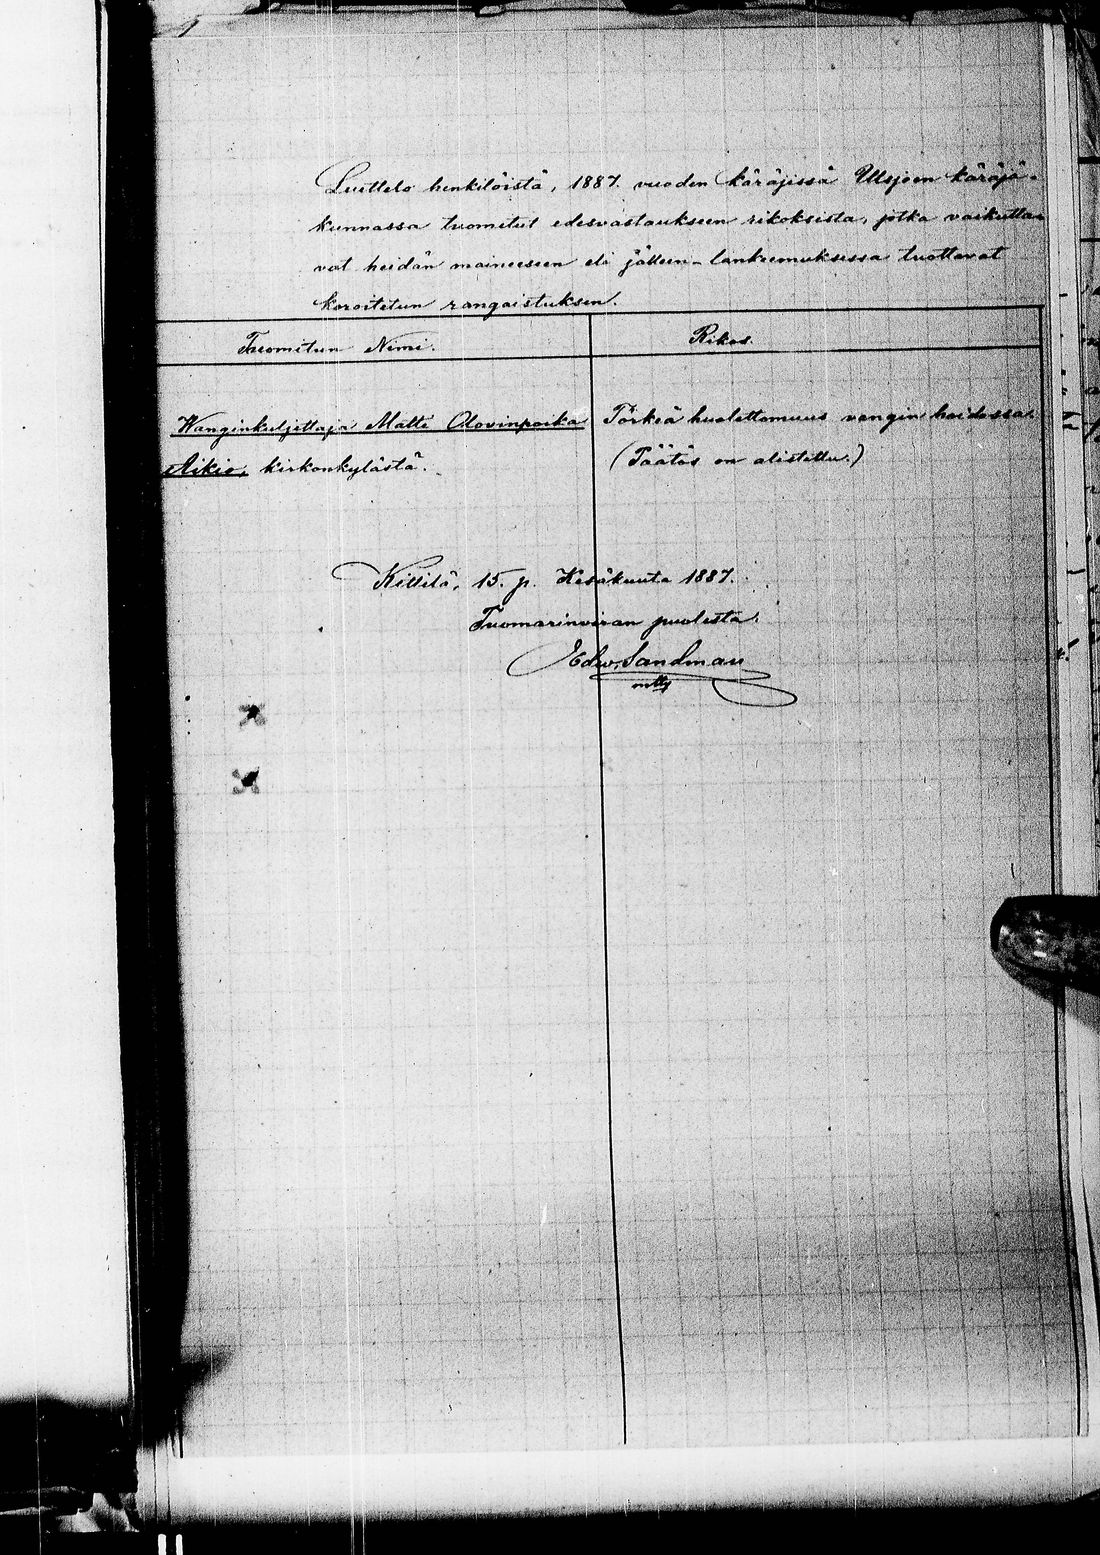 Luettelo henkilöistä, 1887. vuoden käräjissä Utsjoen käräjä-
kunnassa tuomitut edesvastaukseen rikoksista, jotka vaikutta-
vat heidän maineeseen eli jälleen-lankeemuksessa tuottavat
koroitetun rangaistuksen.
Tuomitun Nimi.
Rikos.
Wanginkuljettaja Matti Olovinpoika
Aikio, kirkonkylästä.
Törkeä huolettomuus vangin hoidossa.
(Päätös on alistettu.)
Kittilä, 15. p. Kesäkuuta 1887.
Tuomarinviran puolesta:
Edw. Sandman